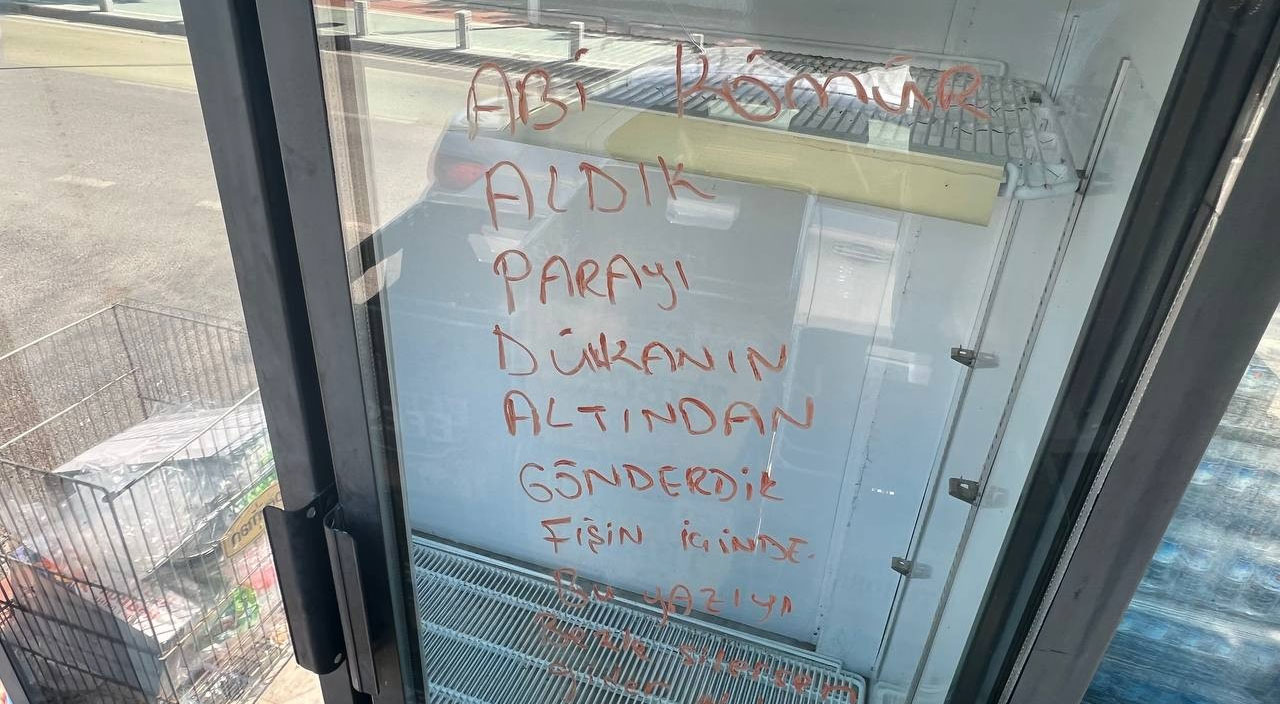 ABİ KÖMÜR
ALDIK
PARAYI
DÜKKANIN
ALTINDAN
GÖNDERDİK
FİŞİN İÇİNDE.
Bu yazıyı
Bezle silersen
Gider